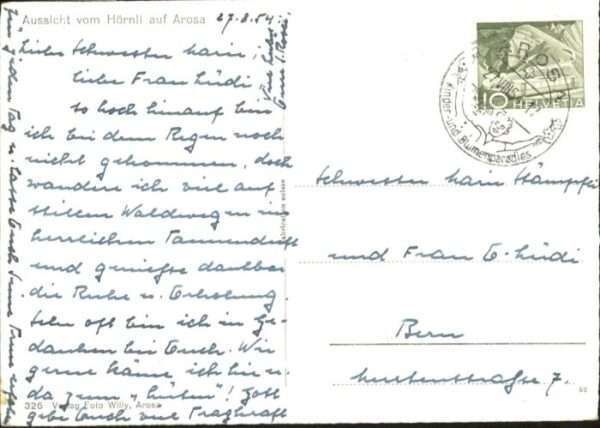 Aussicht vom Hörnli auf Arosa
27.8.54.
Liebe Schwester
liebe Frau Lüdi
so hoch hinauf bin
ich bei dem Regen noch
nicht gekommen, doch
wandere ich viel auf
stillen Waldwegen im
herrlichen Tannenduft
und geniesse dankbar
die Ruhe u. Erholung.
Sehr oft bin ich in Ge-
danken bei Euch. Wie
gerne käme ich hin u.
da zum "hüten"! Gott
gebe Euch viel Tragkraft
für jeden Tag u. lasse Euch Seine
326 Verlag Foto Willy, Arosa
10
HELVETIA
AROSA
Kinder- und Blumenparadies
Schwester
und Frau E. Lüdi
Bern
strasse 7.